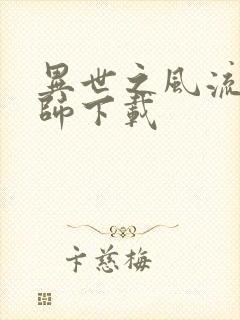 異世之風流
師下載
卞慈梅